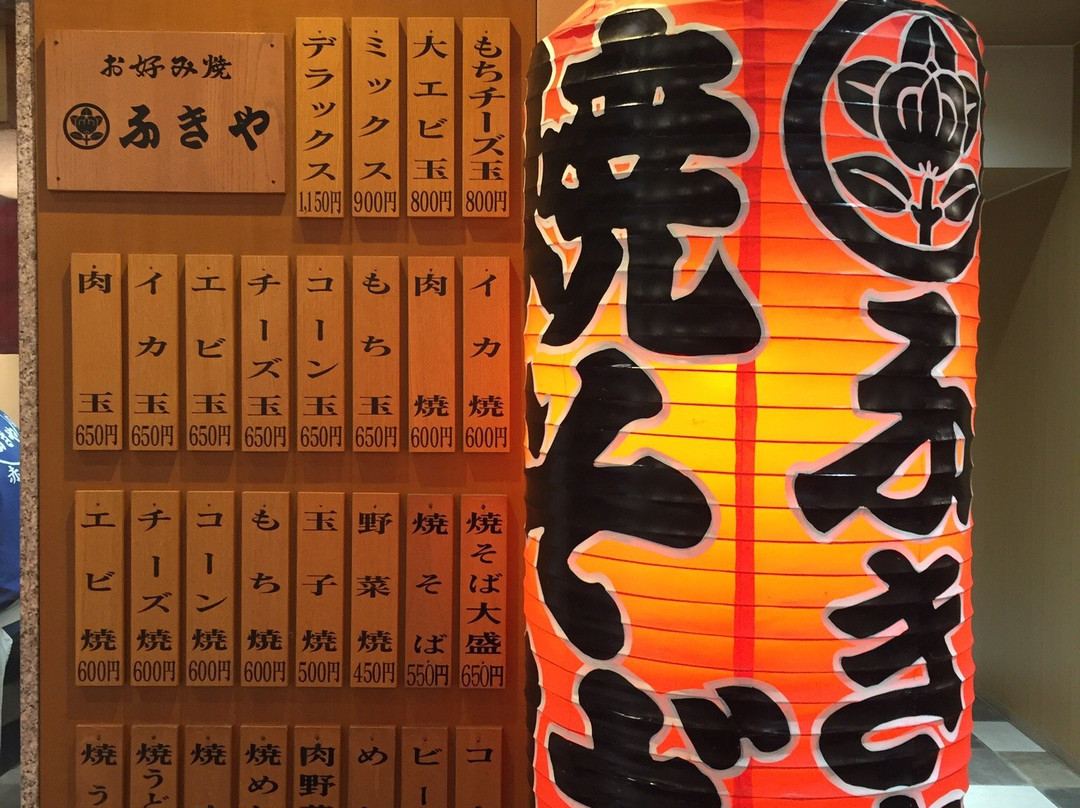 お好み焼
ふきや
もちチーズ玉 800円
大エビ玉 800円
ミックス 900円
デラックス 1,150円
イカ焼 600円
肉焼 600円
もち玉 650円
コーン玉 650円
チーズ玉 650円
エビ玉 650円
イカ玉 650円
肉玉 650円
焼そば大盛 650円
焼そば 550円
野菜焼 450円
玉子焼 500円
もち焼 600円
コーン焼 600円
チーズ焼 600円
エビ焼 600円
コ
ビー
め
肉野菜
焼め
焼
焼うど
焼う
ふき
焼そば